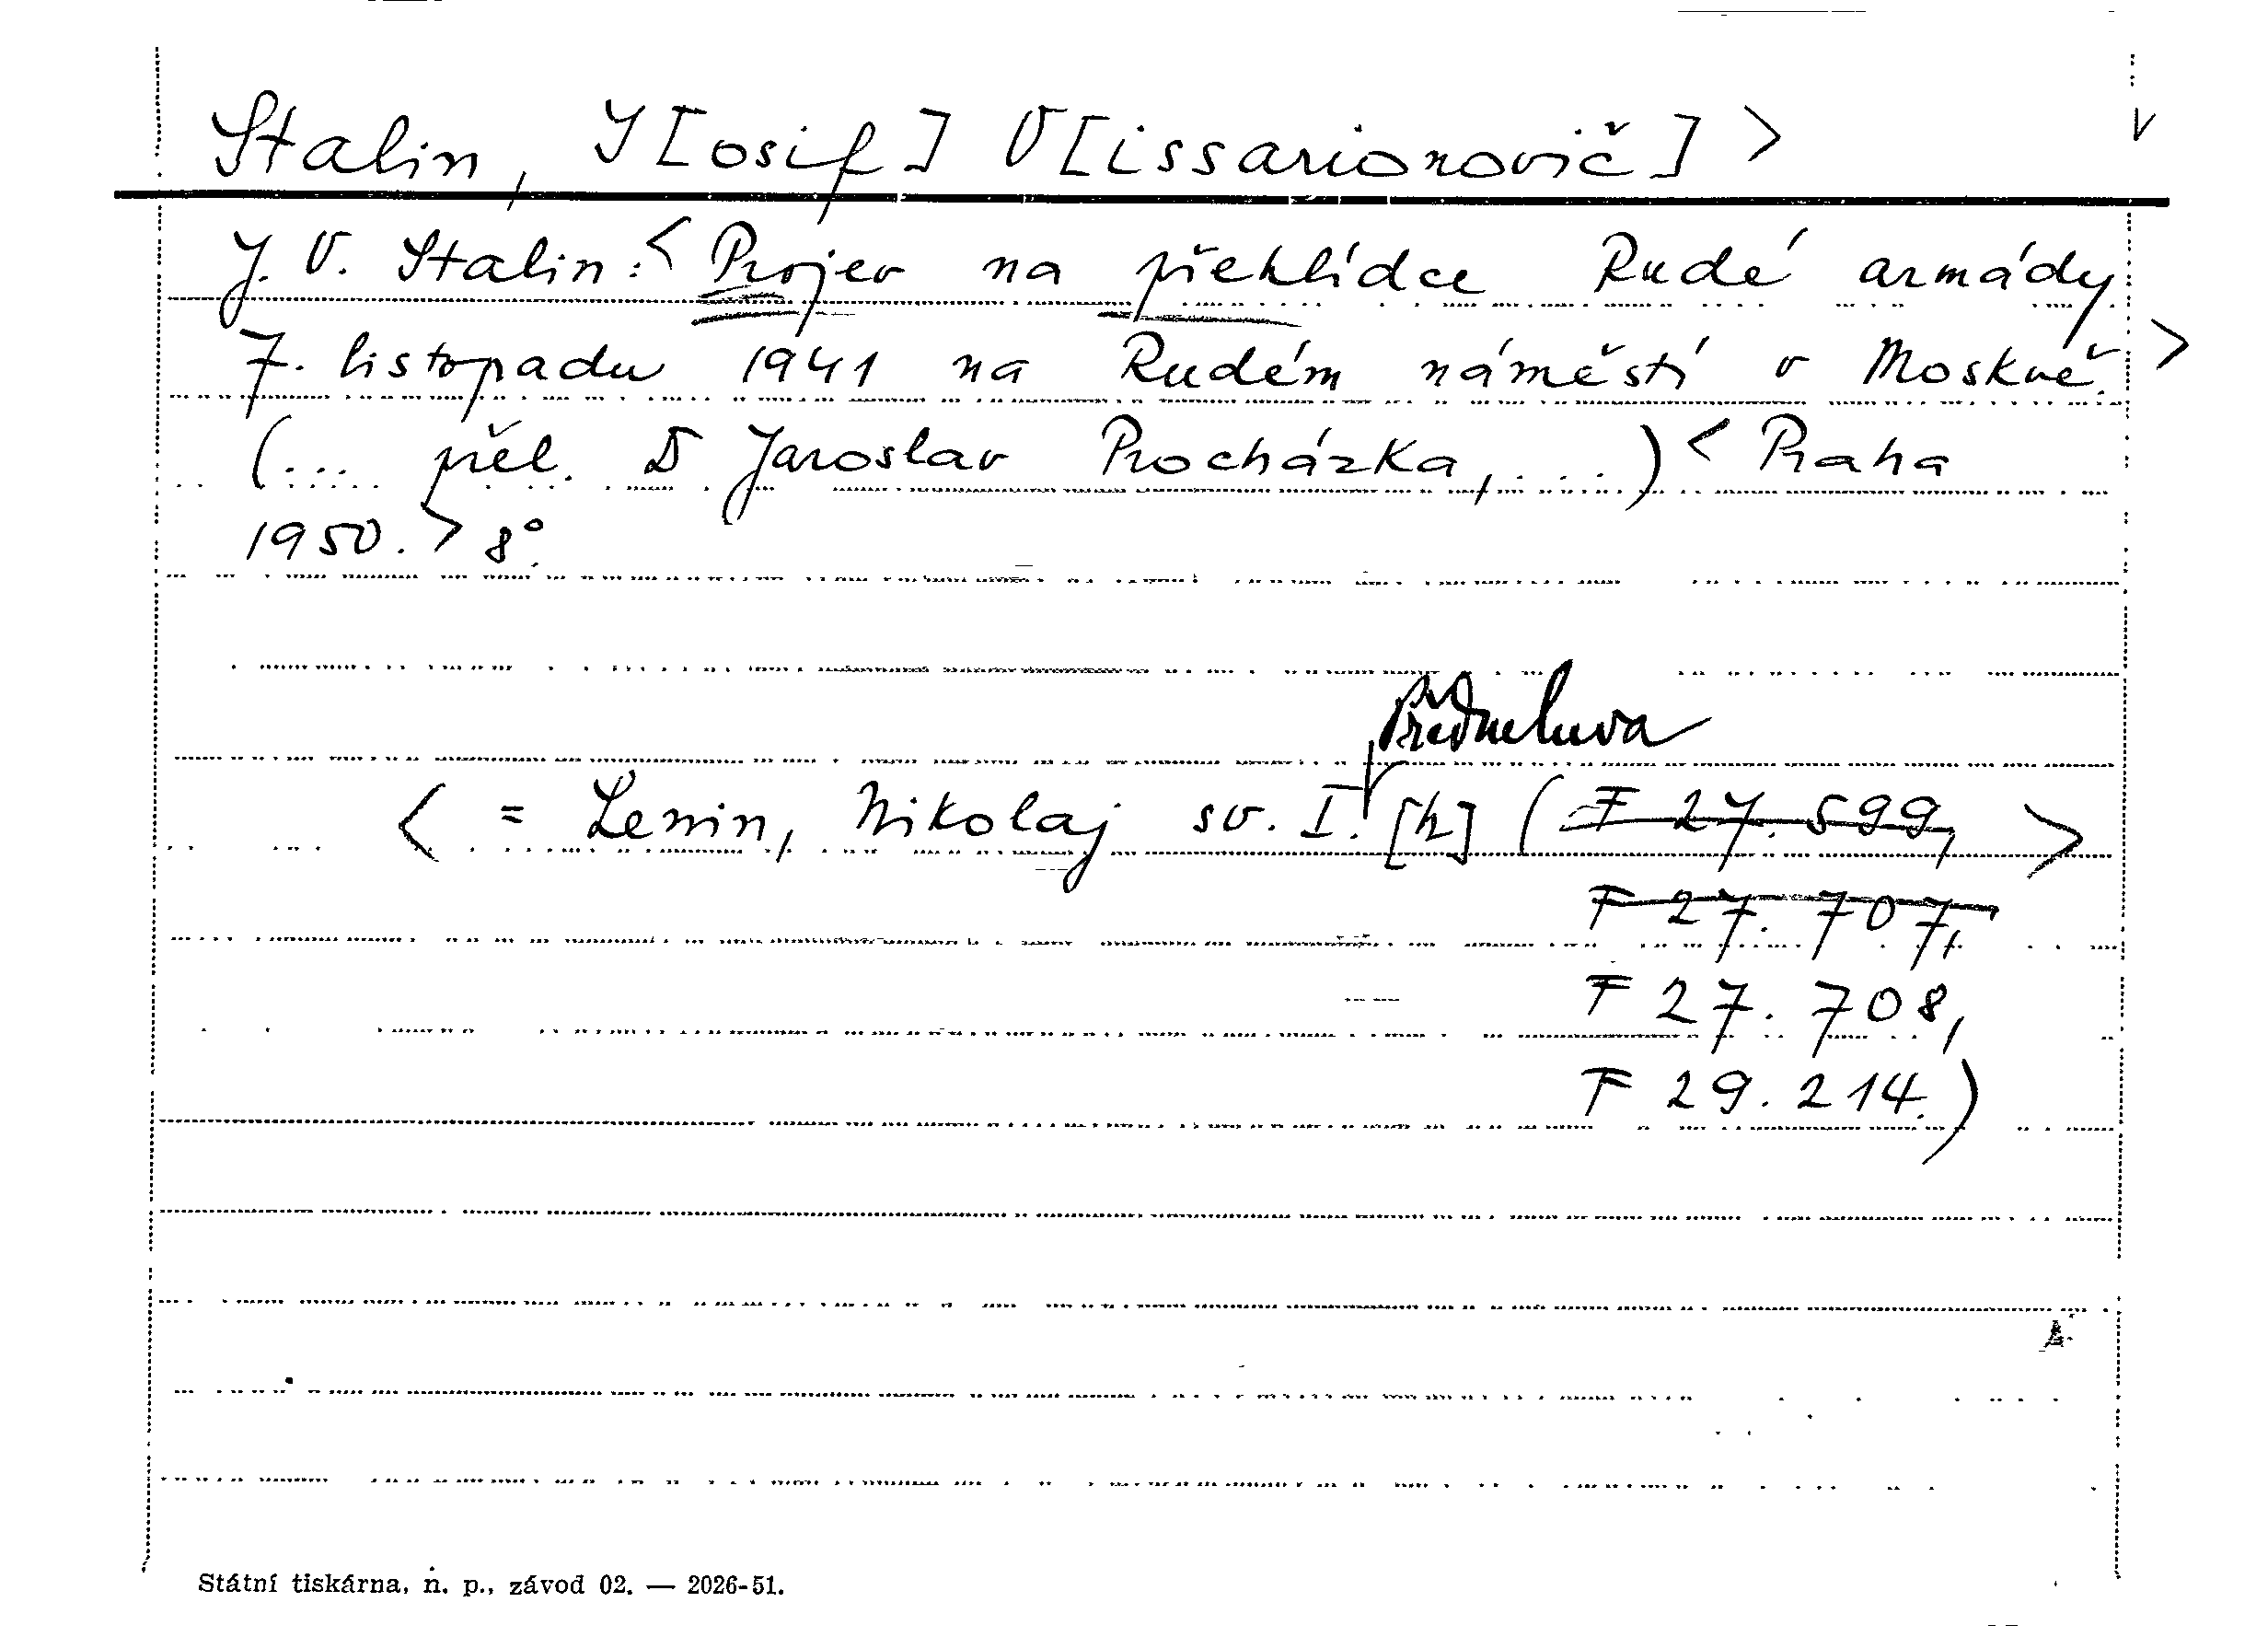 Stalin, J[osif] V[issarionovič] > v
J. V. Stalin: < Projev na přehlídce Rudé armády
7. listopadu 1941 na Rudém náměstí v Moskvě. >
(... přel. Dr Jaroslav Procházka, ....) < Praha
1950. > 8°.
Předmluva
< = Lenin, Nikolaj sv. I. [h] (F 27.599, >
F 27.707,
F 27.708,
F 29.214.)
Státní tiskárna, n. p., závod 02. — 2026-51.